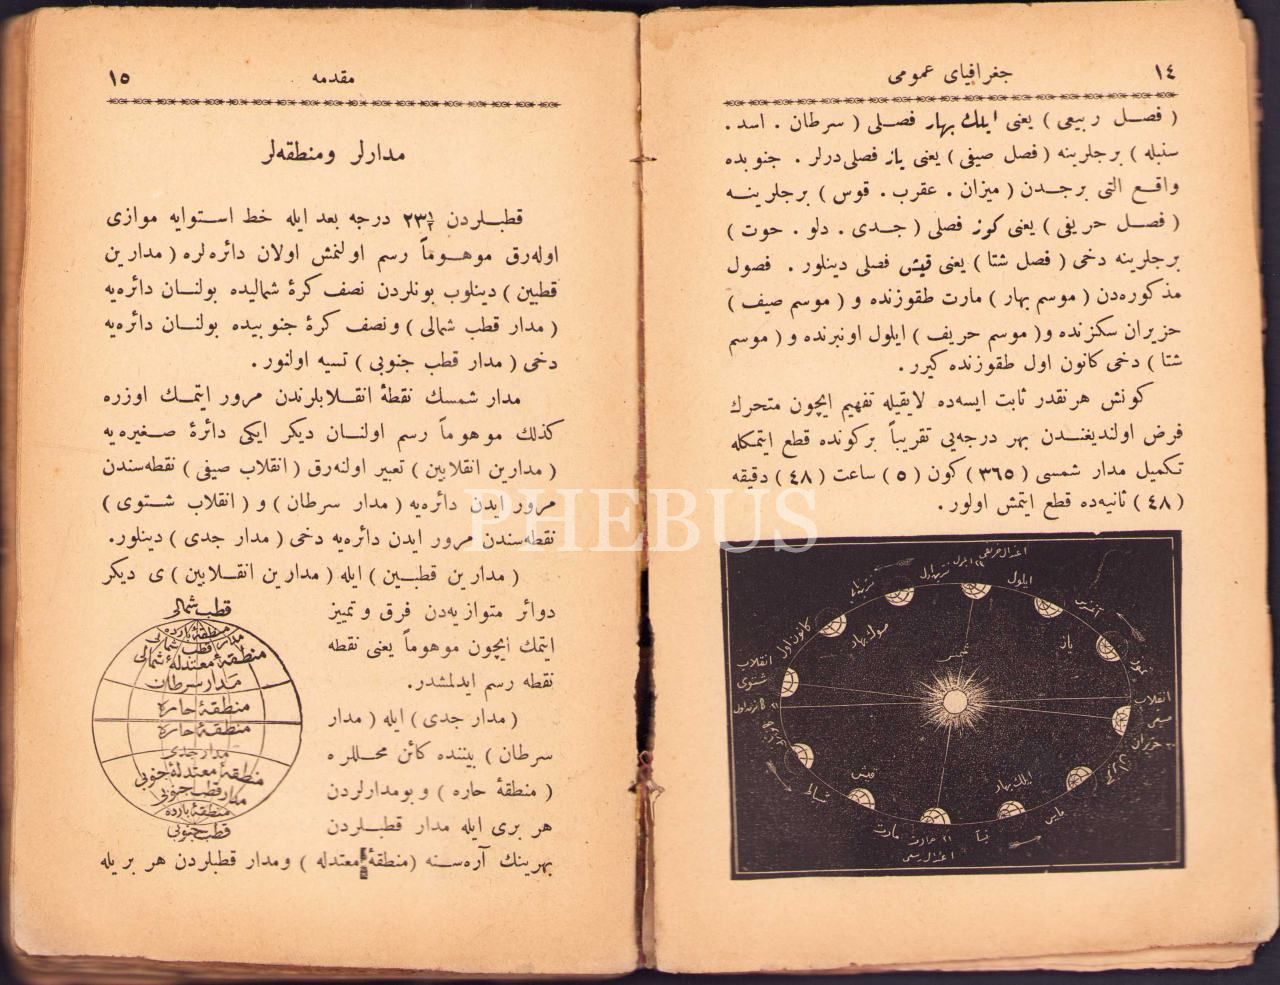 ١٤
جغرافیای عمومی
( فصـل ربیعی ) یعنی ایلك بهار فصلی ( سرطان . اسد .
سنبله ) برجلرینه ( فصل صیفی ) یعنی یاز فصلی درلر . جنوبده
واقـع التی برجـدن ( میزان . عقرب . قوس ) برجلرینـه
( فصـل حریفی ) یعنی کوز فصلی ( جـدی . دلو . حوت )
برجلرینه دخی ( فصل شتا ) یعنی قیش فصلی دینلور . فصول
مذکوره‌دن ( موسم بهار ) مارت طقوزنده و ( موسم صیف )
حزیران سکزنده و( موسم حریف ) ایلول اونبرنده و ( موسم
شتا ) دخی کانون اول طقوزنده کیرر .
کونش هرنقدر ثابت ایسه‌ده لایقیله تفهیم ایچون متحرك
فرض اولندیغنـدن بهر درجه‌یی تقریباً برکونده قطع ایتمکله
تکمیل مدار شمسی ( ٣٦٥ ) کون ( ٥ ) ساعت ( ٤٨ ) دقیقه
( ٤٨ ) ثانیه‌ده قطع ایتمش اولور .
ایلول
یاز
تموز
انقلاب
صیفی
حزیران
مایس
ایلك بهار
مارت
قیش
شباط
انقلاب
شتوی
کانون اول
صوك بهار
شمس
١٥
مقدمه
مدارلر ومنطقه‌لر
قطبلردن ٢٣١/٢ درجه بعد ایله خط استوایه موازی
اوله‌رق موهـوماً رسم اولنمش اولان دائره‌لره ( مدارین
قطبین ) دینلوب بونلردن نصف کرۀ شمالیده بولنـان دائره‌یه
( مدار قطب شمالی ) ونصف کرۀ جنوبیده بولنـان دائره‌یه
دخی ( مدار قطب جنوبی ) تسیه اولنور .
مدار شمسك نقطۀ انقـلابلرندن مرور ایتمـك اوزره
کذلك موهوماً رسم اولنـان دیکر ایکی دائرۀ صـغیره‌یه
( مدارین انقلابین ) تعبیر اولنه‌رق ( انقلاب صیفی ) نقطه‌سندن
مرور ایدن دائره‌یه ( مدار سرطان ) و ( انقلاب شـتوی )
نقطه‌سندن مرور ایدن دائره‌یه دخی ( مدار جدی ) دینلور.
( مدارین قطبـین ) ایله ( مدارین انقـلابین ) ی دیکر
دوائر متوازیه‌دن فرق و تمییز
ایتمك ایچون موهوماً یعنی نقطه
نقطه رسم ایدلمشدر.
( مدار جدی ) ایله ( مدار
سرطان ) بیننده کائن محـللره
( منطقۀ حاره ) وبومدارلردن
هر بری ایله مدار قطبـلردن
بهرینك آره‌سنه (منطقۀ معتدله ) ومدار قطبلردن هر بریله
قطب شمالی
منطقۀ بارده
مدار قطب شمالی
منطقۀ معتدلۀ شمالی
مدار سرطان
منطقۀ حاره
منطقۀ حاره
مدار جدی
منطقۀ معتدلۀ جنوبی
مدار قطب جنوبی
منطقۀ بارده
قطب جنوبی
PHEBUS